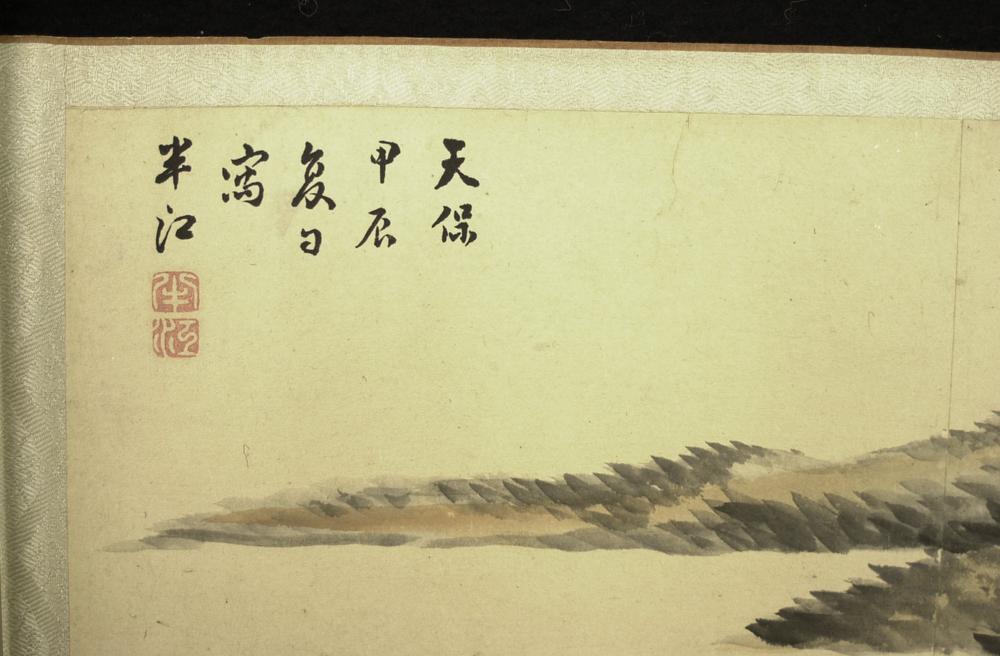 天保
甲辰
夏日
寫
半江
半江